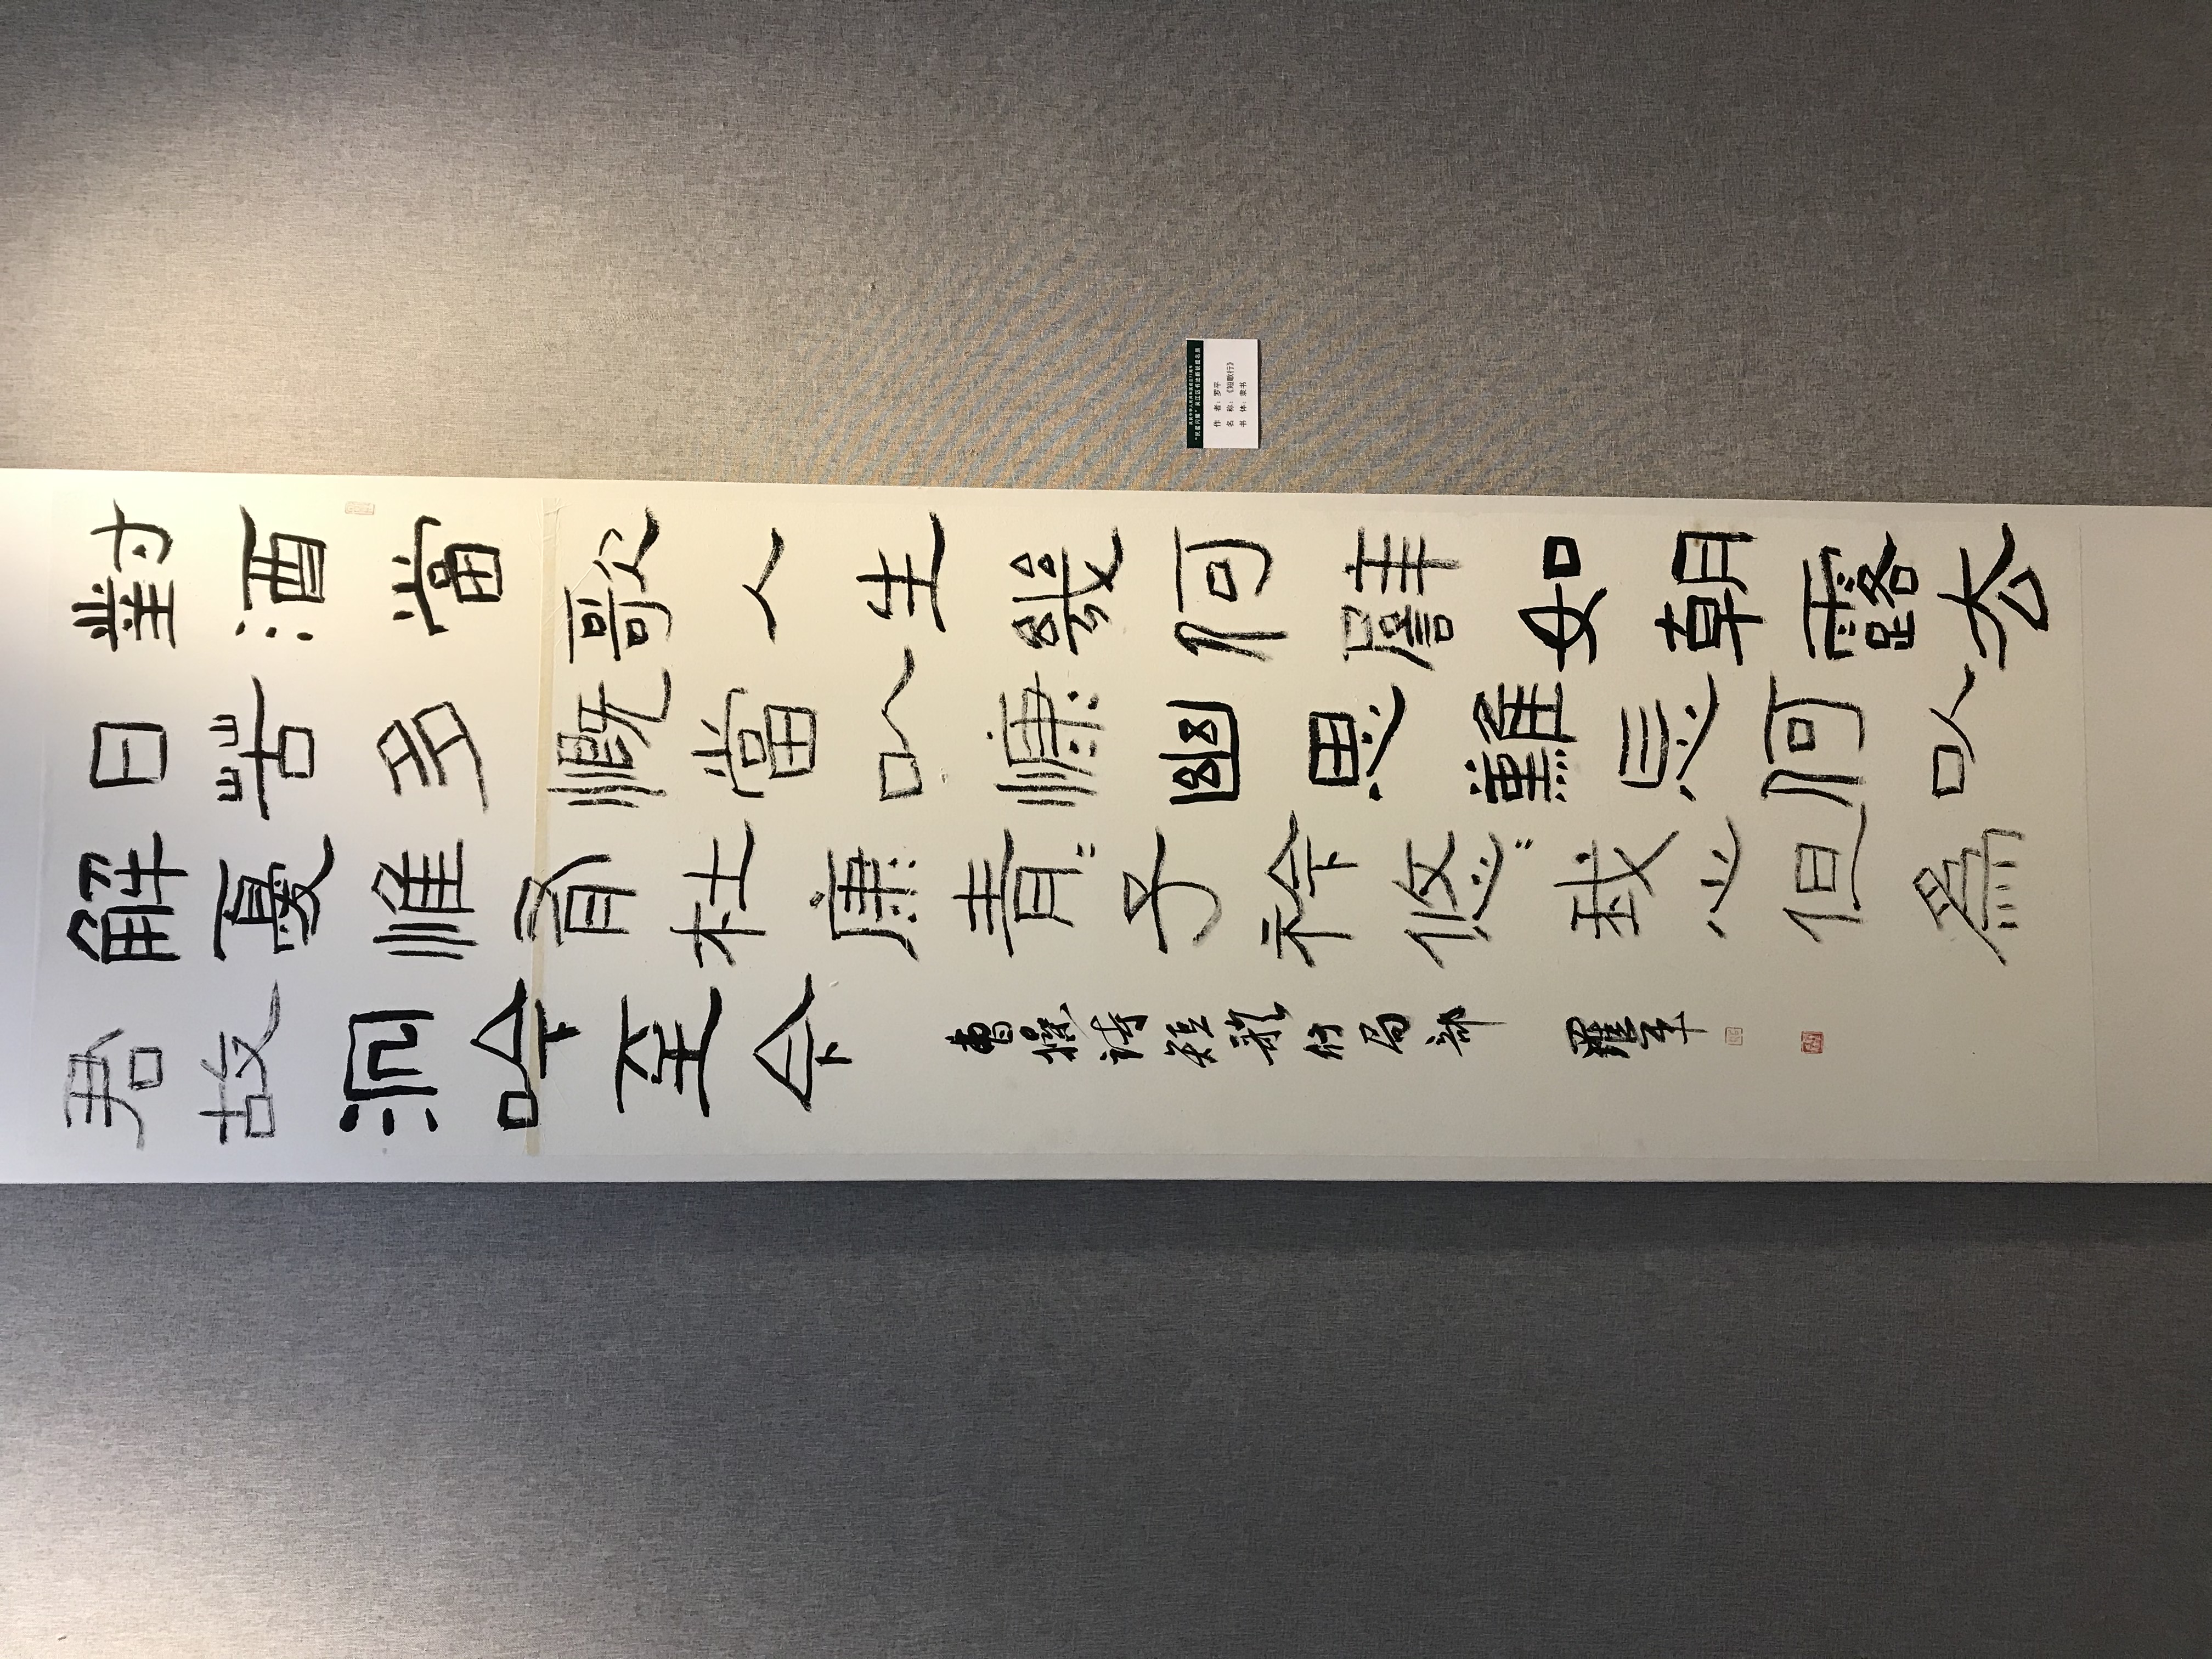 對酒當歌人生幾何譬如朝露去
日苦多慨當㕥慷幽思難忘何㕥
解憂惟有杜康青〻子衿悠〻我心但爲
君故沉吟至今
曹操詩短歌行局部 羅平
庆祝中华人民共和国成立71周年
“民星闪耀”吴江区书法新锐提名展
作 者：罗平
名 称：《短歌行》
书 体：隶书